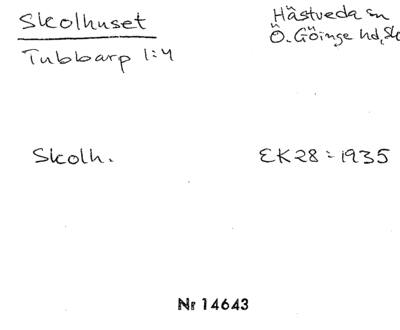 Skolhuset
Hästveda sn
Tubbarp 1:4
Ö. Göinge hd, Sk
Skolh.
EK28 = 1935
Nr 14643